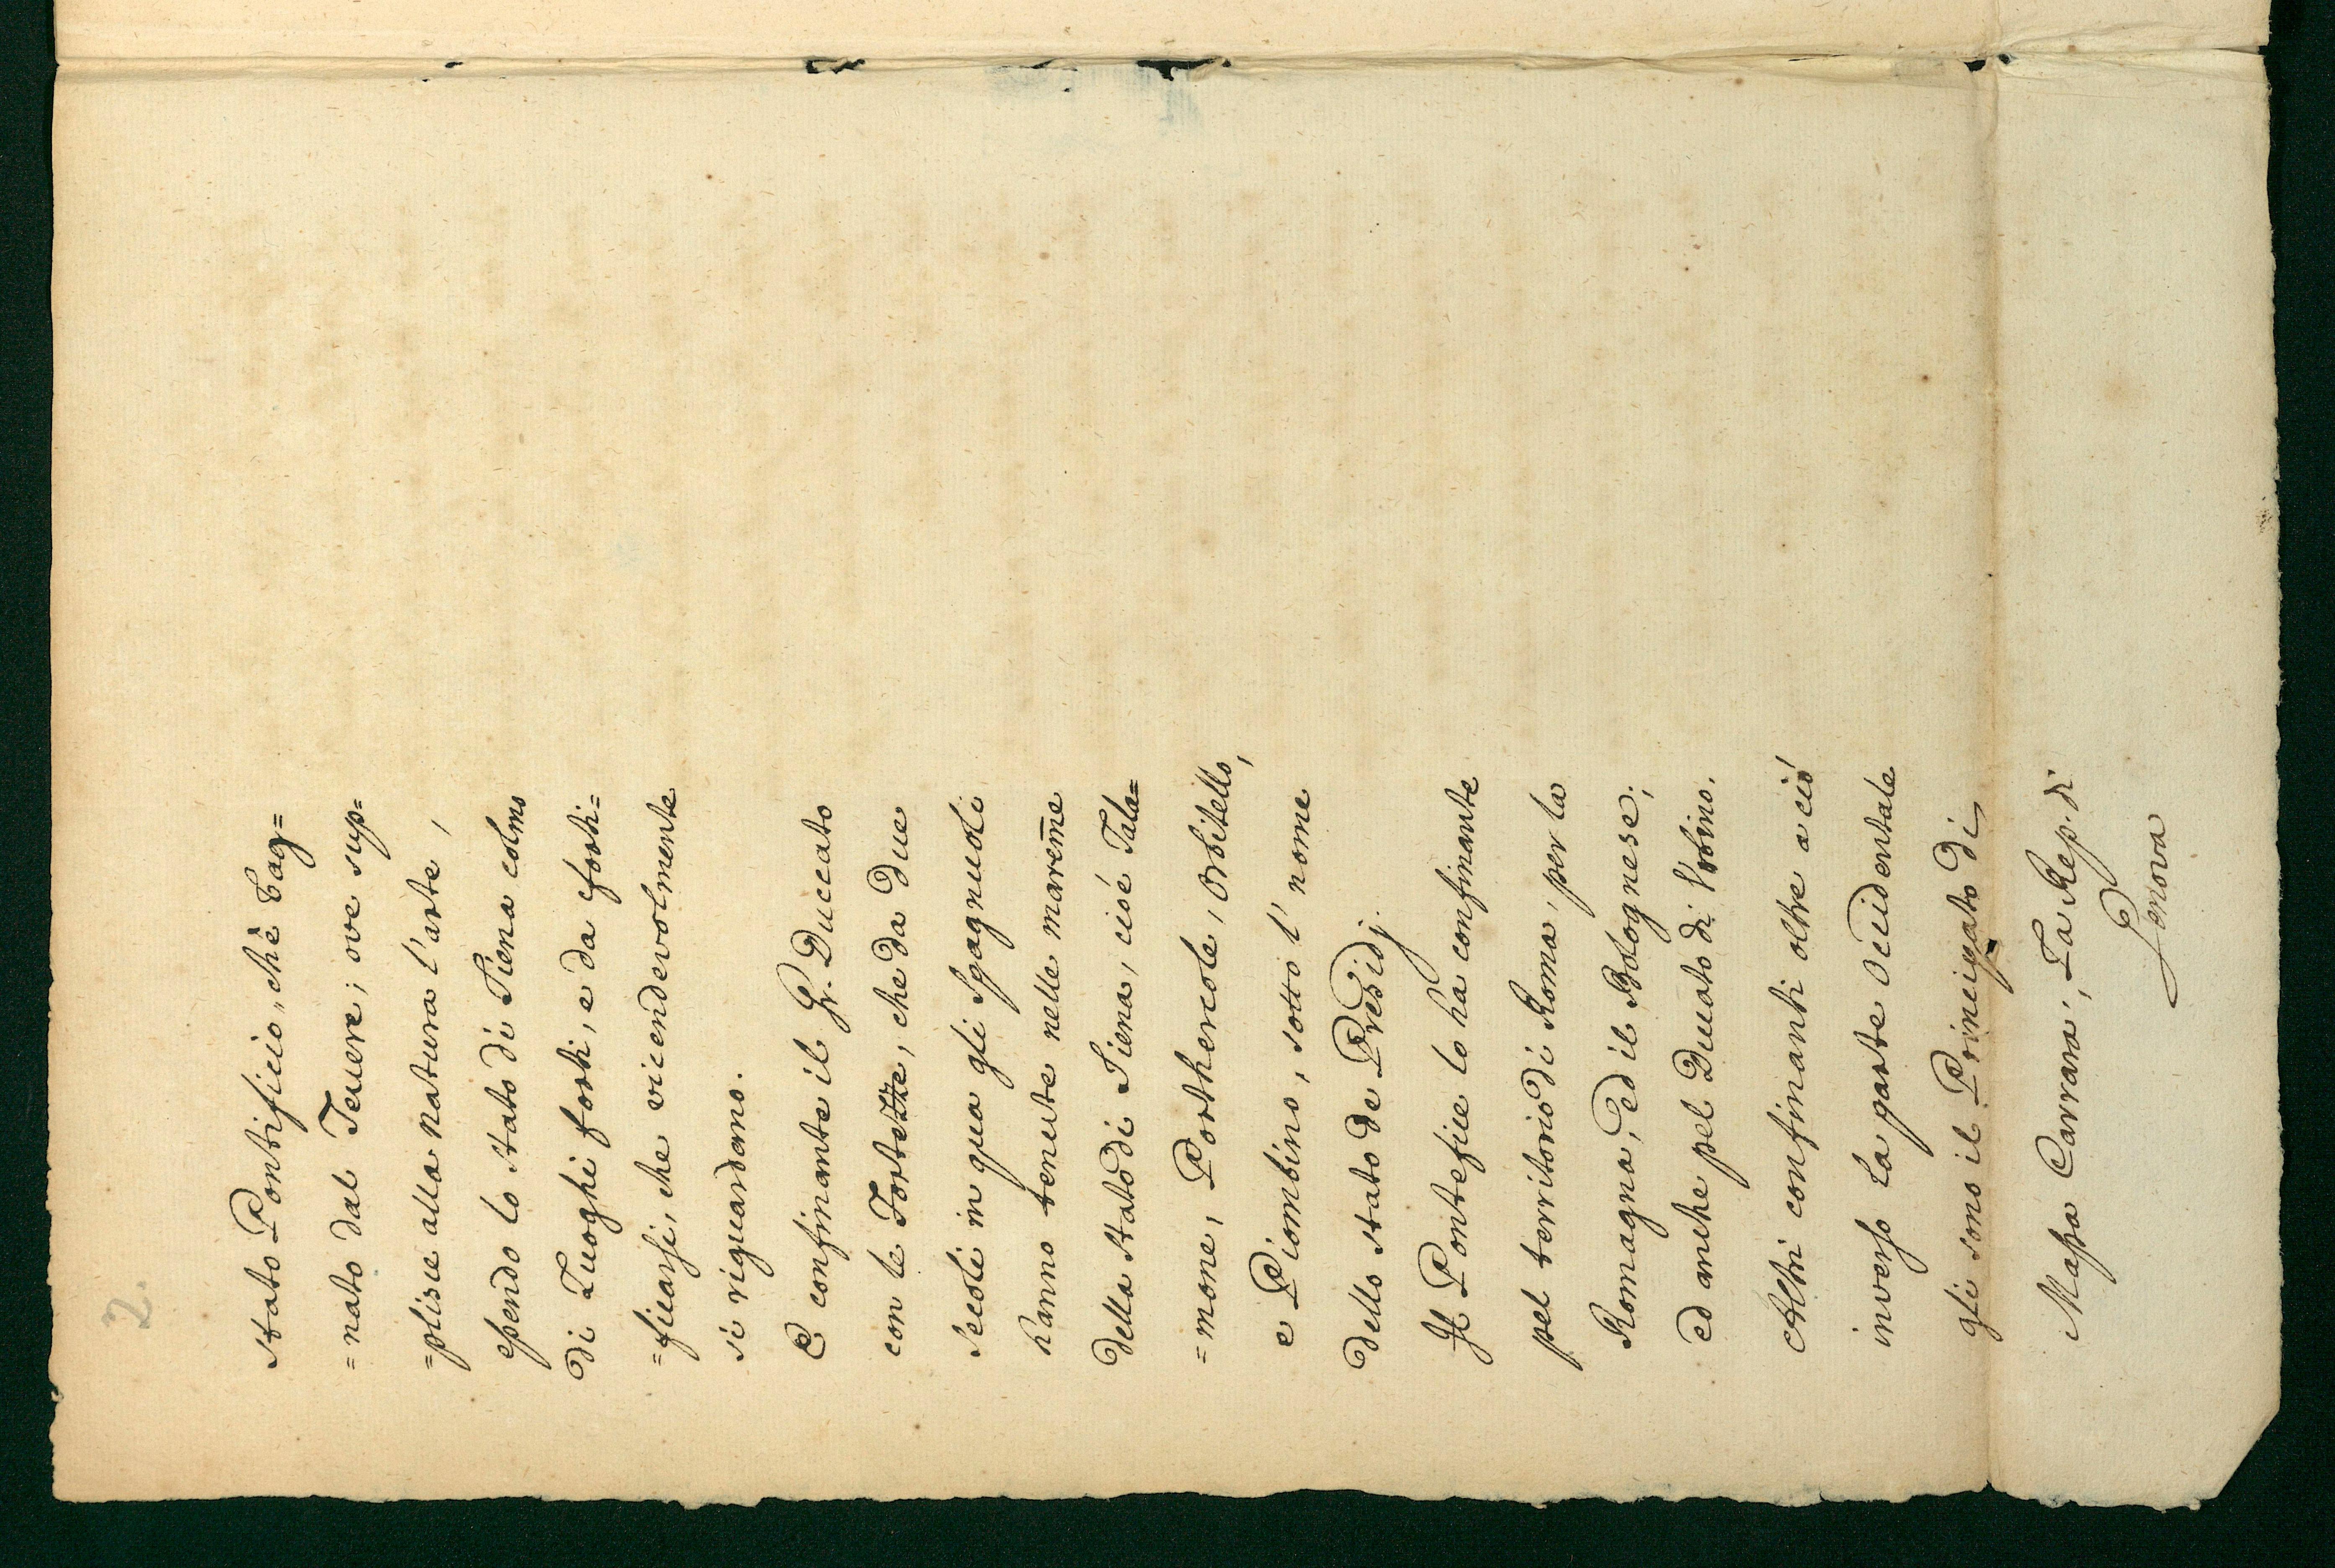 2.
stato Pontificio, ch'è bag=
=nato dal Tevere; ove sup=
=plisce alla natura l'arte,
essendo lo stato di Siena colmo
di Luoghi forti, e da forti=
=ficarsi, che vicendevolmente
si riguardano.
È confinante il Gr. Duccato
con le Fortezze, che da due
secoli in qua gli Spagnuoli
hanno tenute nelle marem̄e
dello stato di Siena, cioé Tala=
=mone, Porthercole, Orbitello,
e Piombino, sotto l' nome
dello stato de Presidj.
Il Pontefice lo ha confinante
pel territorio di Roma, per la
Romagna, ed il Bolognese;
ed anche pel Ducato di Urbino.
Altri confinanti oltre a ció
inverso la parte occidentale
gli sono il Principato di
Massa Carrara; La Rep. di
Genova